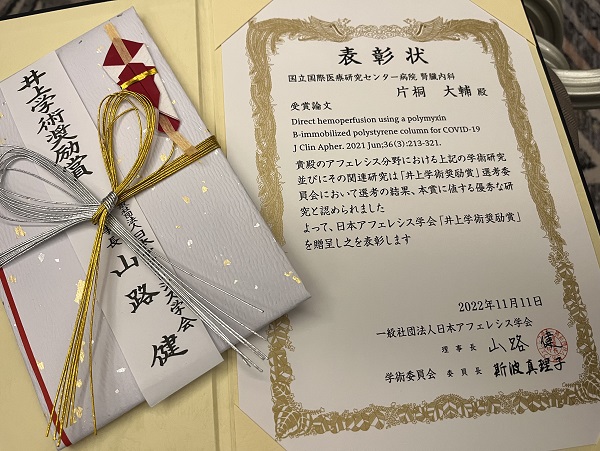 井上学術奨励賞
山路 健
表彰状
国立国際医療研究センター病院 腎臓内科
片桐 大輔 殿
受賞論文
Direct hemoperfusion using a polymyxin
B-immobilized polystyrene column for COVID-19
J Clin Apher. 2021 Jun;36(3):213-321.
貴殿のアフェレシス分野における上記の学術研究
並びにその関連研究は「井上学術奨励賞」選考委
員会において選考の結果、本賞に値する優秀な研
究と認められました
よって、日本アフェレシス学会「井上学術奨励賞」
を贈呈し之を表彰します
2022年11月11日
一般社団法人日本アフェレシス学会
理事長 山路 健
学術委員会 委員長 新波真理子